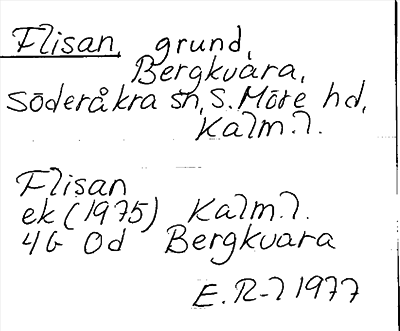 Flisan, grund,
Bergkvara,
Söderåkra sn, S. Möre hd,
Kalm. l.
Flisan
ek (1975) Kalm. l.
4G 0d Bergkvara
E. R-l 1977